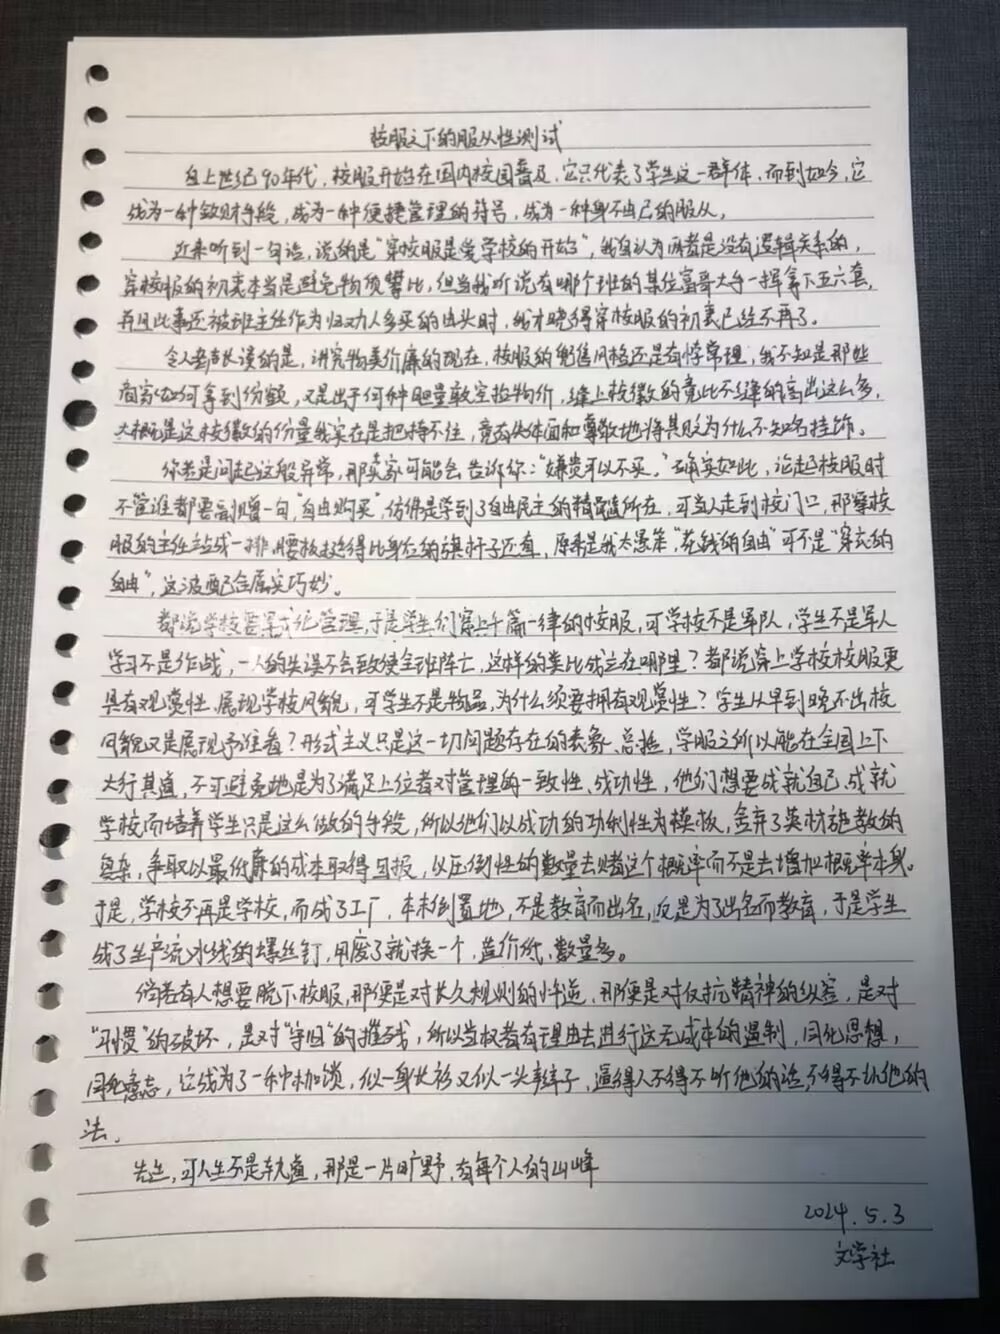 校服之下的服从性测试
自上世纪90年代，校服开始在国内校园普及，它只代表了学生这一群体，而到如今，它
成为一种敛财手段，成为一种便捷管理的符号，成为一种身不由己的服从。
近来听到一句话，说的是“穿校服是爱学校的开始”，我自认为两者是没有逻辑关系的，
穿校服的初衷本当是避免物质攀比，但当我听说有哪个班的某位富哥大手一挥拿下五六套，
并且此事还被班主任作为归功人多买的由头时，我才晓得穿校服的初衷已经不再了。
令人声长谈的是，讲究物美价廉的现在，校服的销售风格还是有悖常理，我不知是那些
商家如何拿到份额，又是出于何种胆量敢空抬物价，缝上校徽的竟比不缝的高出这么多，
大概是这校徽的份量我实在是把持不住，竟有失体面和尊敬地将其贬为什么不知名挂饰。
你若是问起这般异常，那卖家可能会告诉你：“嫌贵可以不买。”确实如此，论起校服时
不管谁都要副赠一句“自由购买”，仿佛是学到了自由民主的精髓所在，可当人走到校门口，那穿校
服的主任站成一排，腰板挺得比身位的旗杆子还直，原来是我太愚笨“花钱的自由”可不是“穿衣的
自由”，这波配合属实巧妙。
都说学校要军式化管理，于是学生们穿上千篇一律的校服，可学校不是军队，学生不是军人
学习不是作战，一人的失误不会致使全班阵亡，这样的类比成立在哪里？都说穿上学校校服更
具有观赏性，展现学校风貌，可学生不是物品，为什么须要拥有观赏性？学生从早到晚不出校
风貌又是展现予谁看？形式主义只是这一切问题存在的表象，总括，学服之所以能在全国上下
大行其道，不可避免地是为了满足上位者对管理的一致性、成功性，他们想要成就自己，成就
学校而培养学生只是这么做的手段，所以他们以成功的功利性为模板，舍弃了英材施教的
复杂，争取以最低廉的成本取得回报，以压倒性的数量去赌这个概率而不是去增加概率本身。
于是，学校不再是学校，而成了工厂，本末倒置地，不是教育而出名，反是为了出名而教育，于是学生
成了生产流水线的螺丝钉，用废了就换一个，造价低、数量多。
倘若有人想要脱下校服，那便是对长久规则的忤逆，那便是对反抗精神的纵容，是对
“习惯”的破坏，是对“牢固”的摧残，所以当权者有理由去进行这无成本的遏制，同化思想，
同化意志，它成为了一种枷锁，似一身长衫又似一头辫子，逼得人不得不听他的话，不得不从他的
法。
先生，可人生不是轨道，那是一片旷野，有每个人的山峰
2024.5.3
文学社